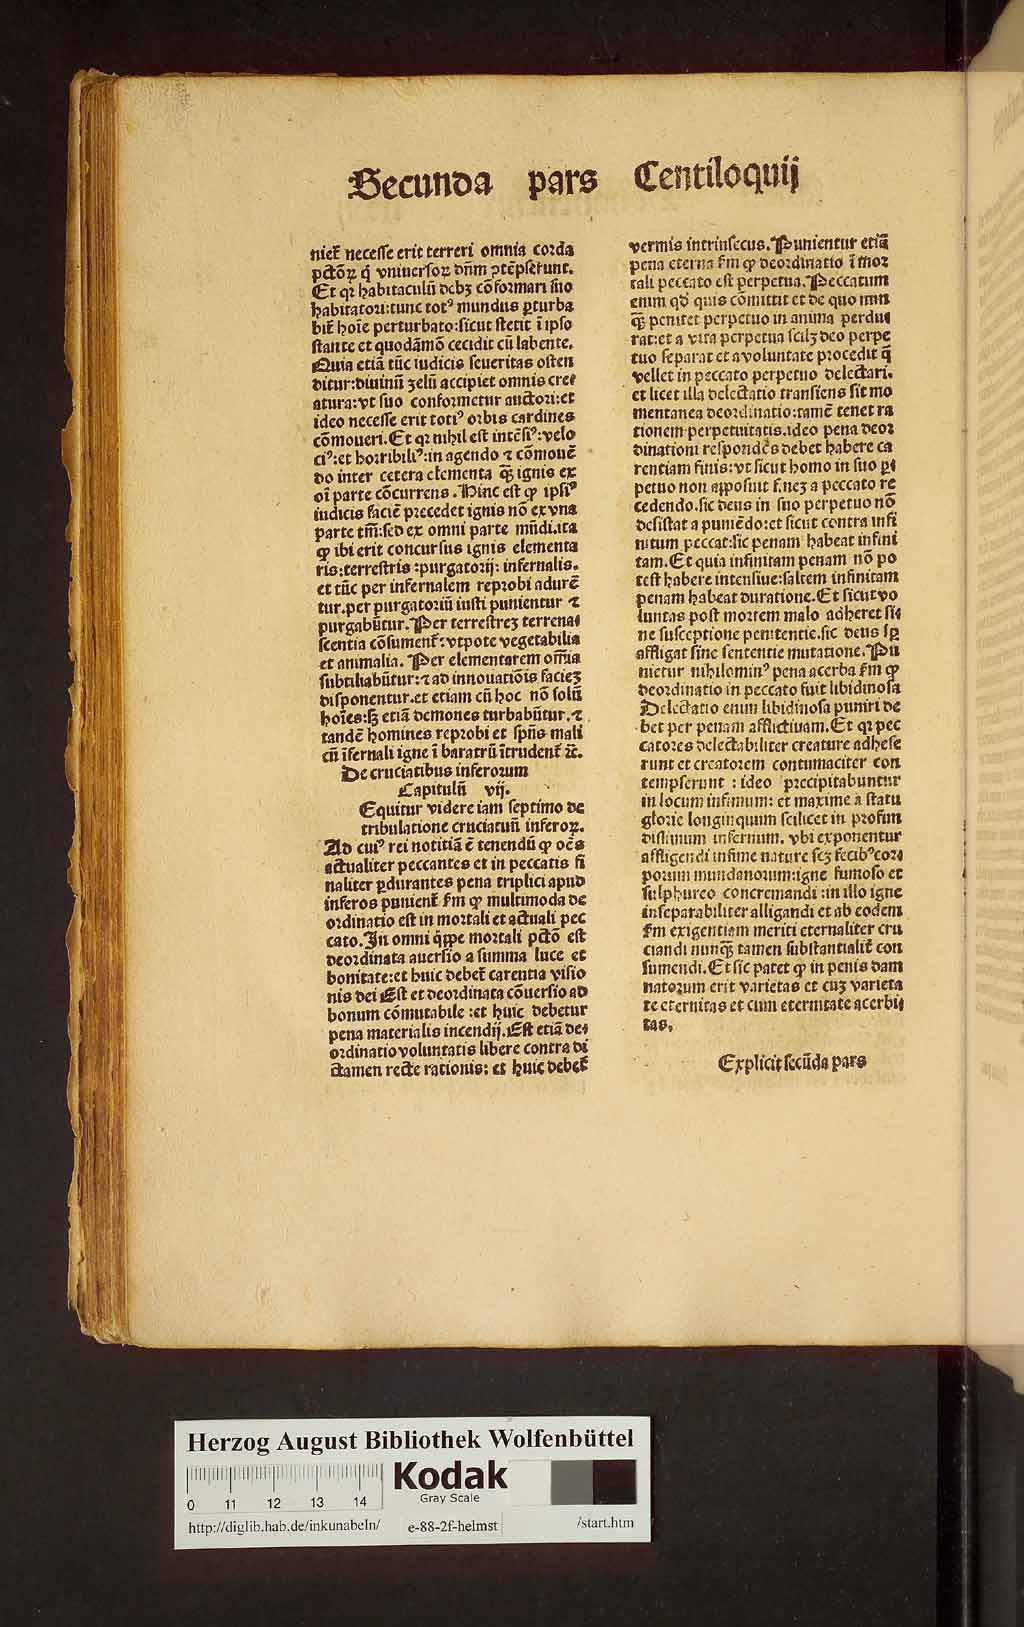 Secunda pars Centiloquij
niet̄ necesse erit terreri omnia corda
pctōꝝ q̇ vniuersoꝝ dn̄m ꝯtēpserunt.
Et qꝛ habitaculū debꝫ cōformari suo
habitatori:tunc totꝰ mundus ꝑturba
bit̄ hoīe perturbato:sicut stetit ī ipso
stante et quodāmō cecidit cū labente.
Quia etiā tūc iudicis seueritas osten
ditur:diuinū zelū accipiet omnis cre⸗
atura:vt suo conformetur auctori:et
ideo necesse erit totiꝰ orbis cardines
cōmoueri.Et qꝛ nihil est intēsiꝰ:velo
ciꝰ:et horribiliꝰ:in agendo ⁊ cōmouē
do inter cetera elementa qꝫ̄ ignis ex
oī parte cōcurrens. Hinc est ꝙ ipsiꝰ
iudicis faciē precedet ignis nō ex vna
parte tm̄:sed ex omni parte mūdi.ita
ꝙ ibi erit concursus ignis elementa
ris:terrestris:purgatorij: infernalis.
et tūc per infernalem reprobi adurē
tur.per purgatoriū iusti punientur ⁊
purgabūtur.Per terrestreꝫ terrena⸗
scentia cōsument̄:vtpote vegetabilia
et animalia. Per elementarem om̄ia
subtiliabūtur:⁊ ad innouatiōis facieꝫ
disponentur.et etiam cū hoc nō solū
hoīes:sꝫ etiā demones turbabūtur.⁊
tandē homines reprobi et spūs mali
cū īfernali igne ī baratrū ītrudent̄ ⁊c̄.
De cruciatibus inferorum
Capitulū vij.
Equitur videre iam septimo de
tribulatione cruciatuū inferoꝝ.
Ad cuiꝰ rei notitiā ē tenendū ꝙ oēs
actualiter peccantes et in peccatis fi
naliter ꝑdurantes pena triplici apud
inferos punient̄ fm̄ ꝙ multimoda de
ordinatio est in mortali et actuali pec
cato.In omni q̇ppe mortali pctō est
deordinata auersio a summa luce et
bonitate:et huic debet̄ carentia visio
nis dei Est et deordinata cōuersio ad
bonum cōmutabile :et huic debetur
pena materialis incendij.Est etiā de⸗
ordinatio voluntatis libere contra di
ctamen recte rationis: et huic debet̄
vermis intrinsecus.Punientur etiā
pena eterna fm̄ ꝙ deordinatio ī mor
tali peccato est ꝑpetua.Peccatum
enim qd̄ quis cōmittit et de quo nun
qꝫ̄ penitet perpetuo in anima perdu⸗
rat:et a vita perpetua scilꝫ deo perpe
tuo separat et a voluntate procedit q̄
vellet in peccato perpetuo delectari.
et licet illa delectatio transiens sit mo
mentanea deordinatio:tamē tenet ra
tionem perpetuitatis.ideo pena deor
dinationi respondēs debet habere ca
rentiam finis:vt sicut homo in suo ꝑ⸗
petuo non apposuit f.neꝫ a peccato re
cedendo.sic deus in suo perpetuo nō
desistat a puniēdo:et sicut contra infi
nitum peccat:sic penam habeat infini
tam.Et quia infinitam penam nō po
test habere intensiue:saltem infinitam
penam habeat duratione.Et sicut vo
luntas post mortem malo adheret si⸗
ne susceptione penitentie.sic deus sꝑ
affligat sine sententie mutatione.Pu
nietur nihilominꝰ pena acerba fm̄ ꝙ
deordinatio in peccato fuit libidinosa
Delectatio enim libidinosa puniri de
bet per penam afflictiuam.Et qꝛ pec
catores delectabiliter creature adhese
runt et creatorem contumaciter con
tempserunt : ideo precipitabuntur
in locum infimum: et maxime a statu
glorie longinquum scilicet in profun
dissimum infernum. vbi exponentur
affligendi infime nature seꝫ fecibꝰ cor⸗
porum mundanorum:igne fumoso et
sulphureo concremandi :in illo igne
inseparabiliter alligandi et ab eodem
fm̄ exigentiam meriti eternaliter cru
ciandi nunqꝫ̄ tamen substantialit̄ con
sumendi.Et sic patet ꝙ in penis dam
natorum erit varietas et cuꝫ varieta
te eternitas et cum eternitate acerbi⸗
tas.
Explicit secūda pars
Herzog August Bibliothek Wolfenbüttel
Kodak
Gray Scale
0 11 12 13 14
http://diglib.hab.de/inkunabeln/ e-88-2f-helmst /start.htm